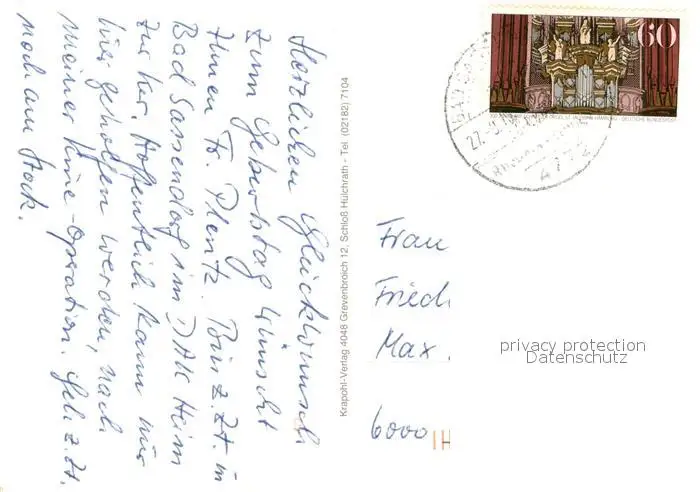 Herzlichen Glückwunsch
zum Geburtstag wünscht
Ihnen Fr. Plentz. Bin z.Zt. in
Bad Sassendorf im DAK Heim
zur Kur. Hoffentlich kann mir
hier geholfen werden, nach
meiner Knie-Operation. Geh z.Zt.
noch am Stock.
Krapohl-Verlag 4048 Grevenbroich 12, Schloß Hülchrath - Tel. (02182) 7104
60
DEUTSCHE BUNDESPOST
4772
Frau
Fried
Max.
6000
privacy protection
Datenschutz